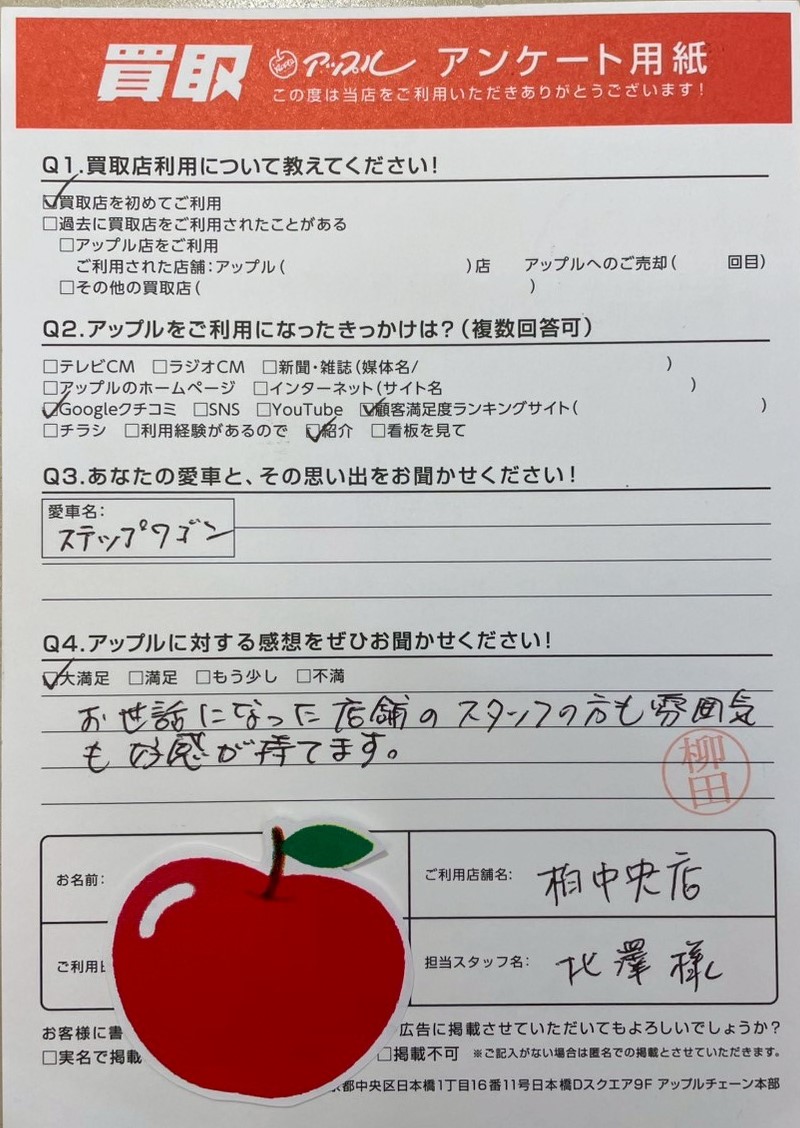 買取 アップル アンケート用紙
この度は当店をご利用いただきありがとうございます!
Q1.買取店利用について教えてください!
☑買取店を初めてご利用
□過去に買取店をご利用されたことがある
□アップル店をご利用
ご利用された店舗:アップル( )店 アップルへのご売却( 回目)
□その他の買取店( )
Q2.アップルをご利用になったきっかけは?(複数回答可)
□テレビCM □ラジオCM □新聞・雑誌(媒体名/ )
□アップルのホームページ □インターネット(サイト名 )
☑Googleクチコミ □SNS □YouTube ☑顧客満足度ランキングサイト( )
□チラシ □利用経験があるので ☑紹介 □看板を見て
Q3.あなたの愛車と、その思い出をお聞かせください!
愛車名:
ステップワゴン
Q4.アップルに対する感想をぜひお聞かせください!
☑大満足 □満足 □もう少し □不満
お世話になった店舗のスタッフの方も雰囲気
も好感が持てます。
柳田
お名前:
ご利用店舗名: 柏中央店
ご利用日
担当スタッフ名: 北澤様
お客様に書 広告に掲載させていただいてもよろしいでしょうか?
□実名で掲載 □掲載不可 ※ご記入がない場合は匿名での掲載とさせていただきます。
京都中央区日本橋1丁目16番11号日本橋Dスクエア9F アップルチェーン本部